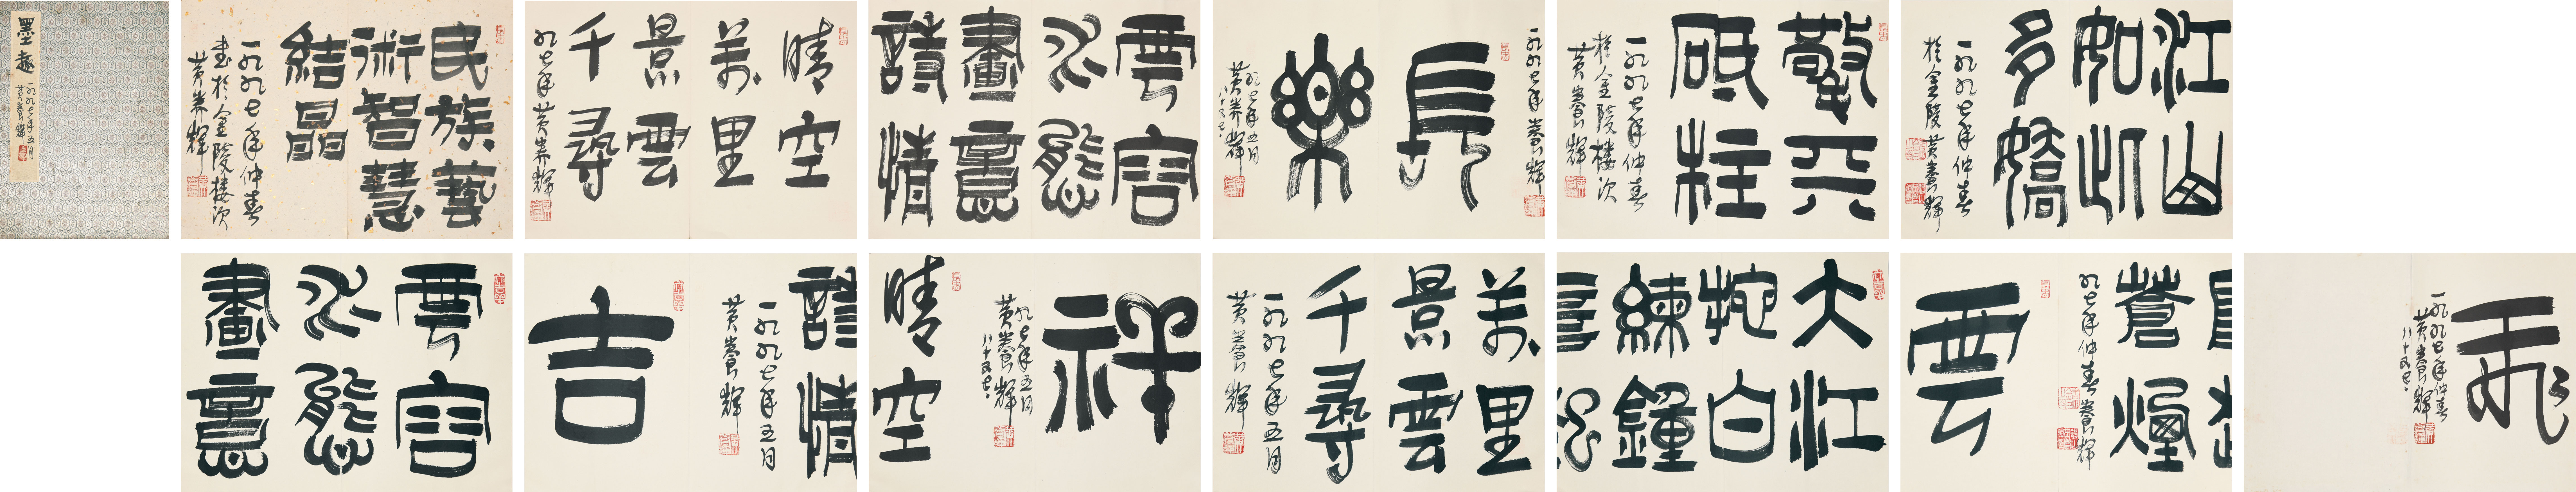 墨趣
一九九七年五月
黃養輝
民族藝
術智慧
結晶
一九九七年仲春
書於金陵樓次
黃養輝
晴空
萬里
景雲
千尋
九七年黃養輝
雲容
水態
畫意
詩情
一九九七年養輝
長
樂
九七年五月
黃養輝
八十又七
擎天
砥柱
一九九七年仲春
於金陵樓次
黃養輝
江山
如此
多嬌
一九九七年仲春
於金陵黃養輝
雲容
水態
畫意
詩情
一九九七年五月
黃養輝
吉
祥
九七年五月
黃養輝
八十又七
晴空
萬里
景雲
千尋
一九九七年五月
黃養輝
大江
拖白
練鐘
蒼煙
九七年仲春養輝
雲
飛
一九九七年仲春
黃養輝
八十又七